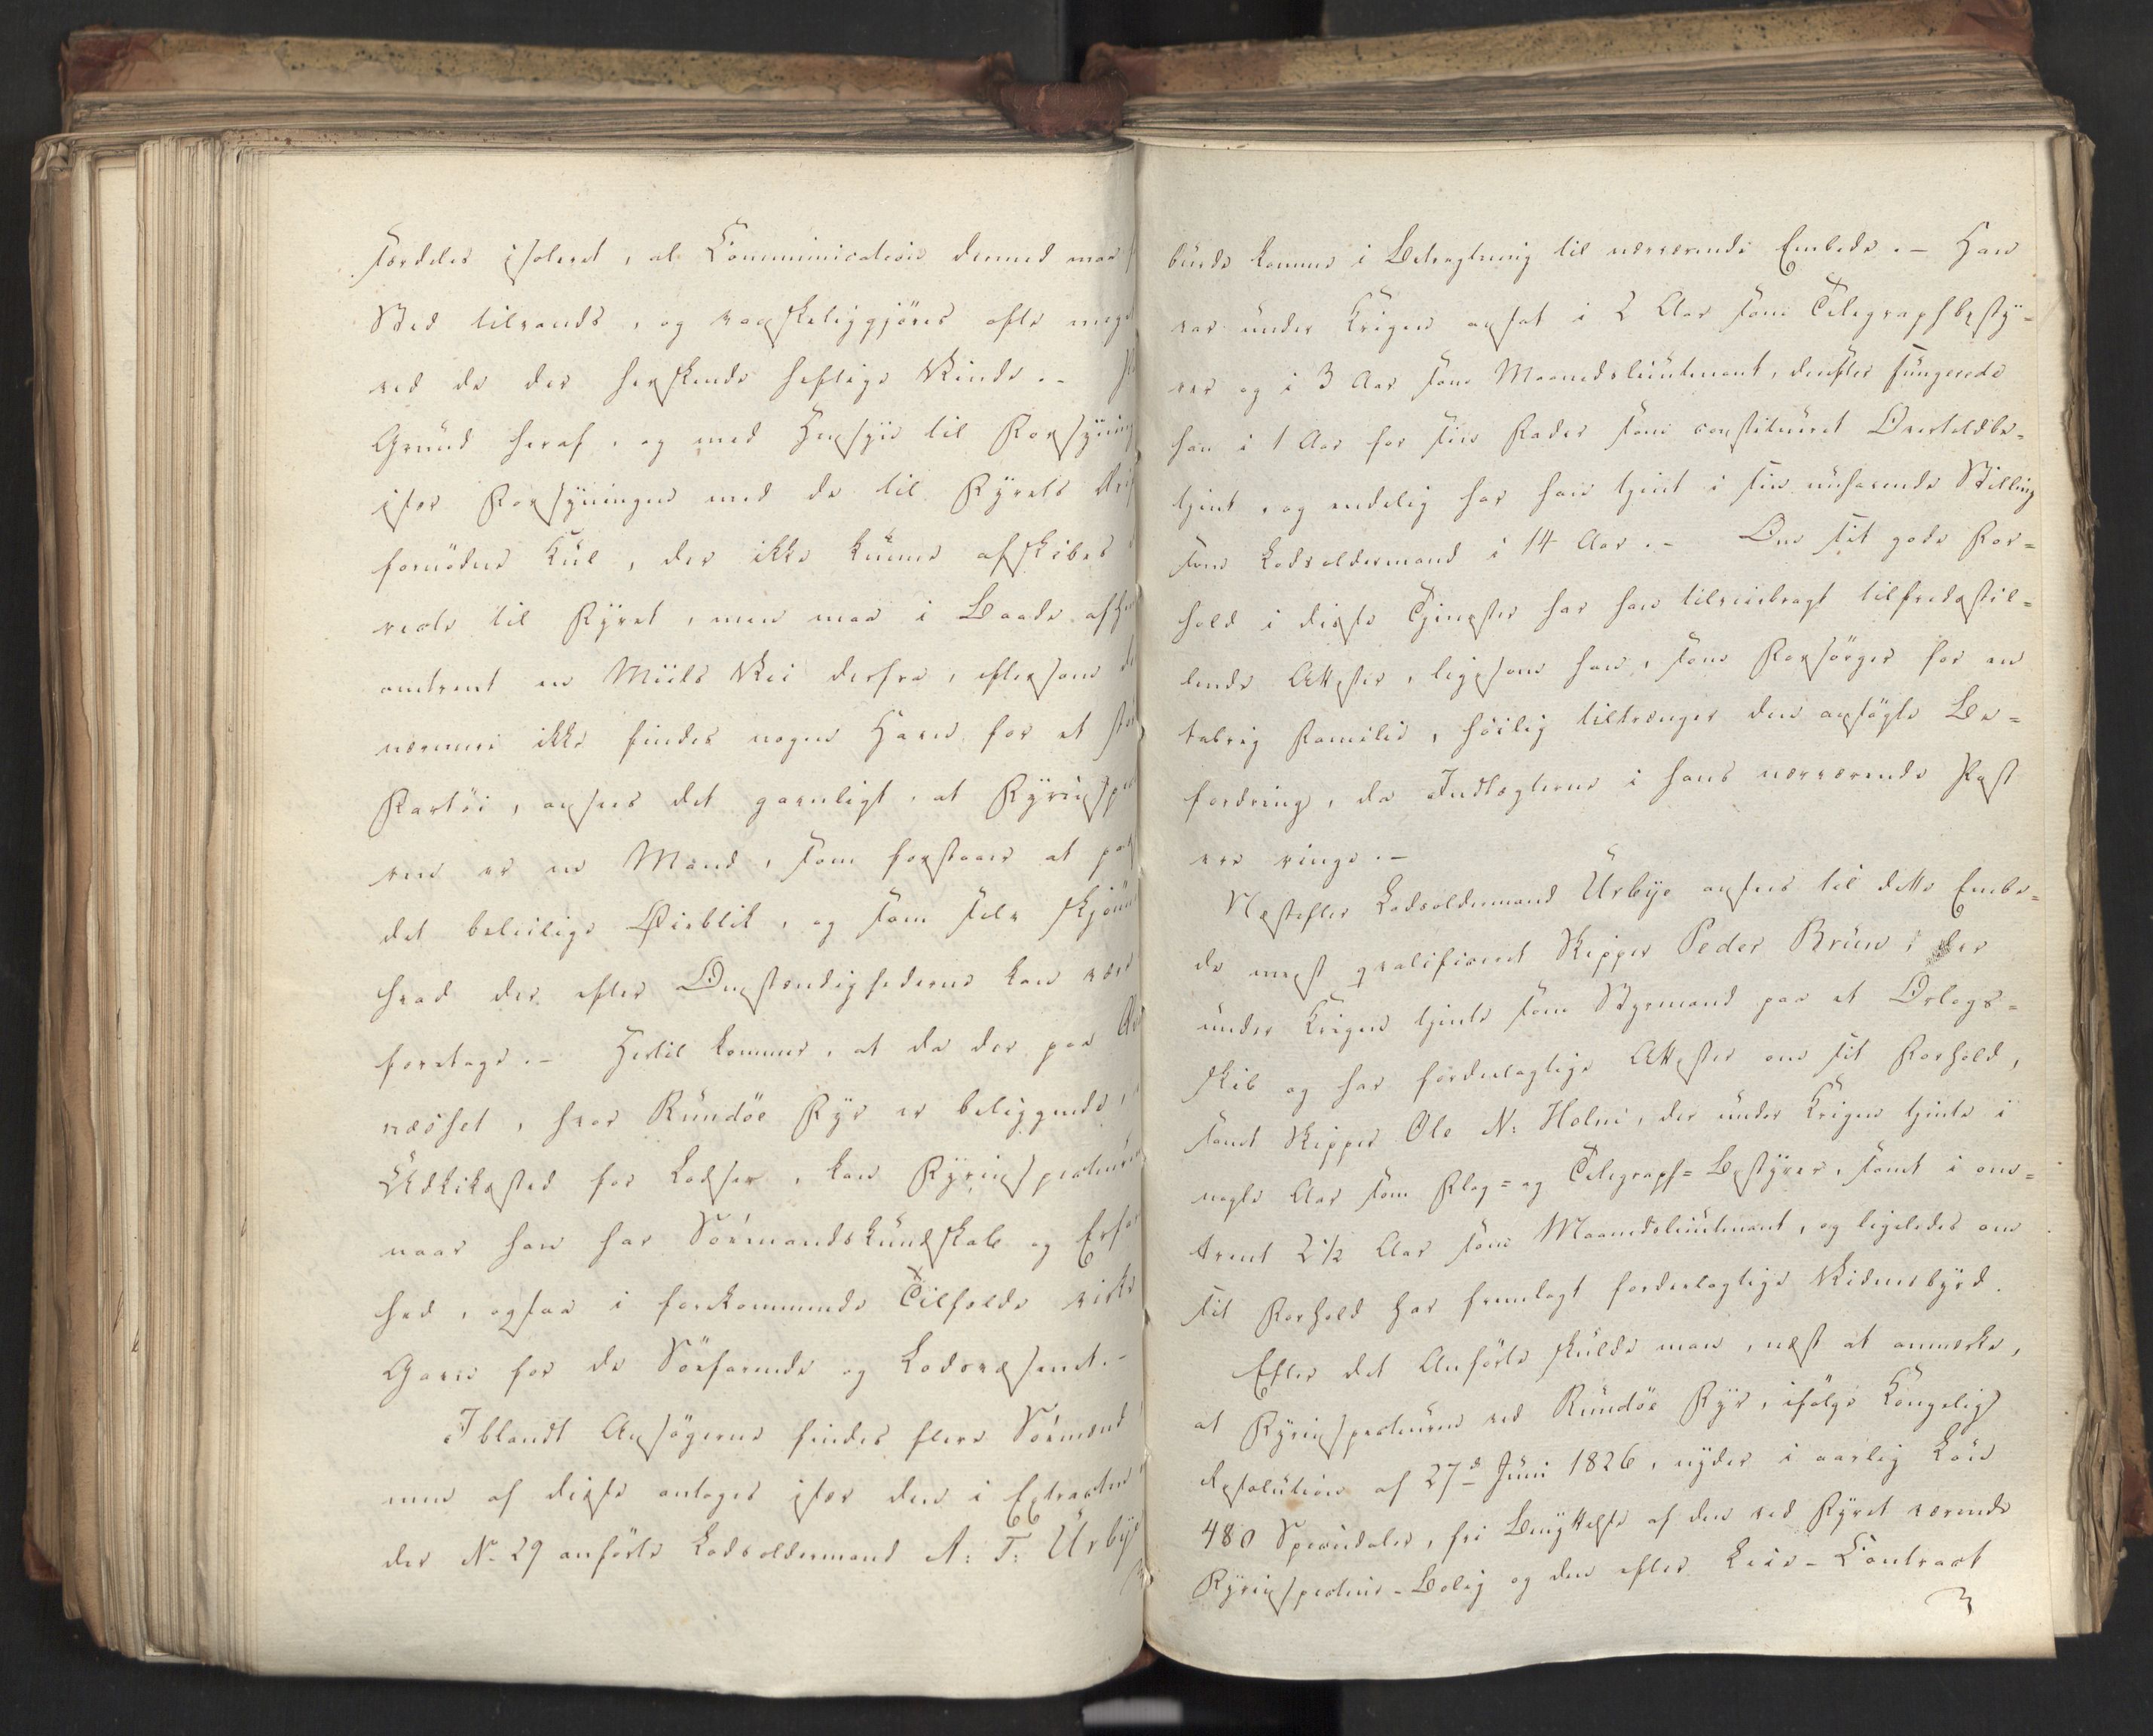 særdeles isoleret, at Communication dermed maa
Sted tilvands, og vanskeliggjöres ofte meget
ved de der herskende heftige Vinde. –
Grund heraf, og med Hensyn til Forsyning
især Forsyningen med de til Fyrets
fornödne Kul, der ikke kunne afskibes
recte til Fyret, men maa i Baade
omtrent en Miils Vei derfra, eftersom
nærmere ikke findes nogen Havn for et
Fartöi, ansees det gavnligt, at Fyrinspec
ren er en Mand, som forstaaer at
det beleilige Öieblik, og som selv skjönne
hvad der efter Omstændighederne kan være
foretage. – Hertil kommer, at da der paa
næsset, hvor Rundöe Fyr er beliggende,
Udkiksted for Lodser, kan Fyrinspecteuren
naar han har Sömandskundskab og Erfa
hed, ogsaa i forekommende Tilfælde virke
Gavn for de Söefarende og Lodsvæsenet. –
Iblandt Ansögerne findes flere Sömænd
men af disse antages især den i Extracten
der No 29 anförte Lodsoldermand A: T: Urbye
burde komme i Betragtning til nærværende Embede. – Han
var under Krigen ansat i 2 Aar som Telegraphbesty-
rer og i 3 Aar som Maanedslieutenant, derefter fungerede
han i 1 Aar for sin Fader som constitueret Overtoldbe-
tjent, og endelig har han tjent i sin nuhavende Stilling
som Lodsoldermand i 14 Aar. – Om sit gode For-
hold i disse Tjenester har han tilveiebragt tilfredsstil-
lende Attester, ligesom han, som Forsörger for en
talrig Familie, höilig tiltrænger den ansögte Be-
fordring, da Indtægterne i hans nærværende Post
ere ringe. –
Næstefter Lodsoldermand Urbye ansees til dette Embe-
de meest qvalificeret Skipper Peder Bruun, der
under Krigen tjente som Styrmand paa et Orlogs-
skib og har fordeelagtige Attester om sit Forhold,
samt Skipper Ole N: Holm, der under Krigen tjente i
nogle Aar som Flag- og Telegraph-Bestyrer, samt i om-
trent 2½ Aar som Maanedslieutenant, og ligeledes om
sit Forhold har fremlagt fordeelagtige Vidnesbyrd.
Efter det Anförte skulde man, næst at anmærke,
at Fyrinspecteuren ved Rundöe Fyr, ifölge Kongelig
Resolution af 27d Juni 1826, nyder i aarlig Lön
480 Speciedaler, fri Benyttelse af den ved Fyret værende
Fyrinspecteur-Bolig og den efter Leie-Contract